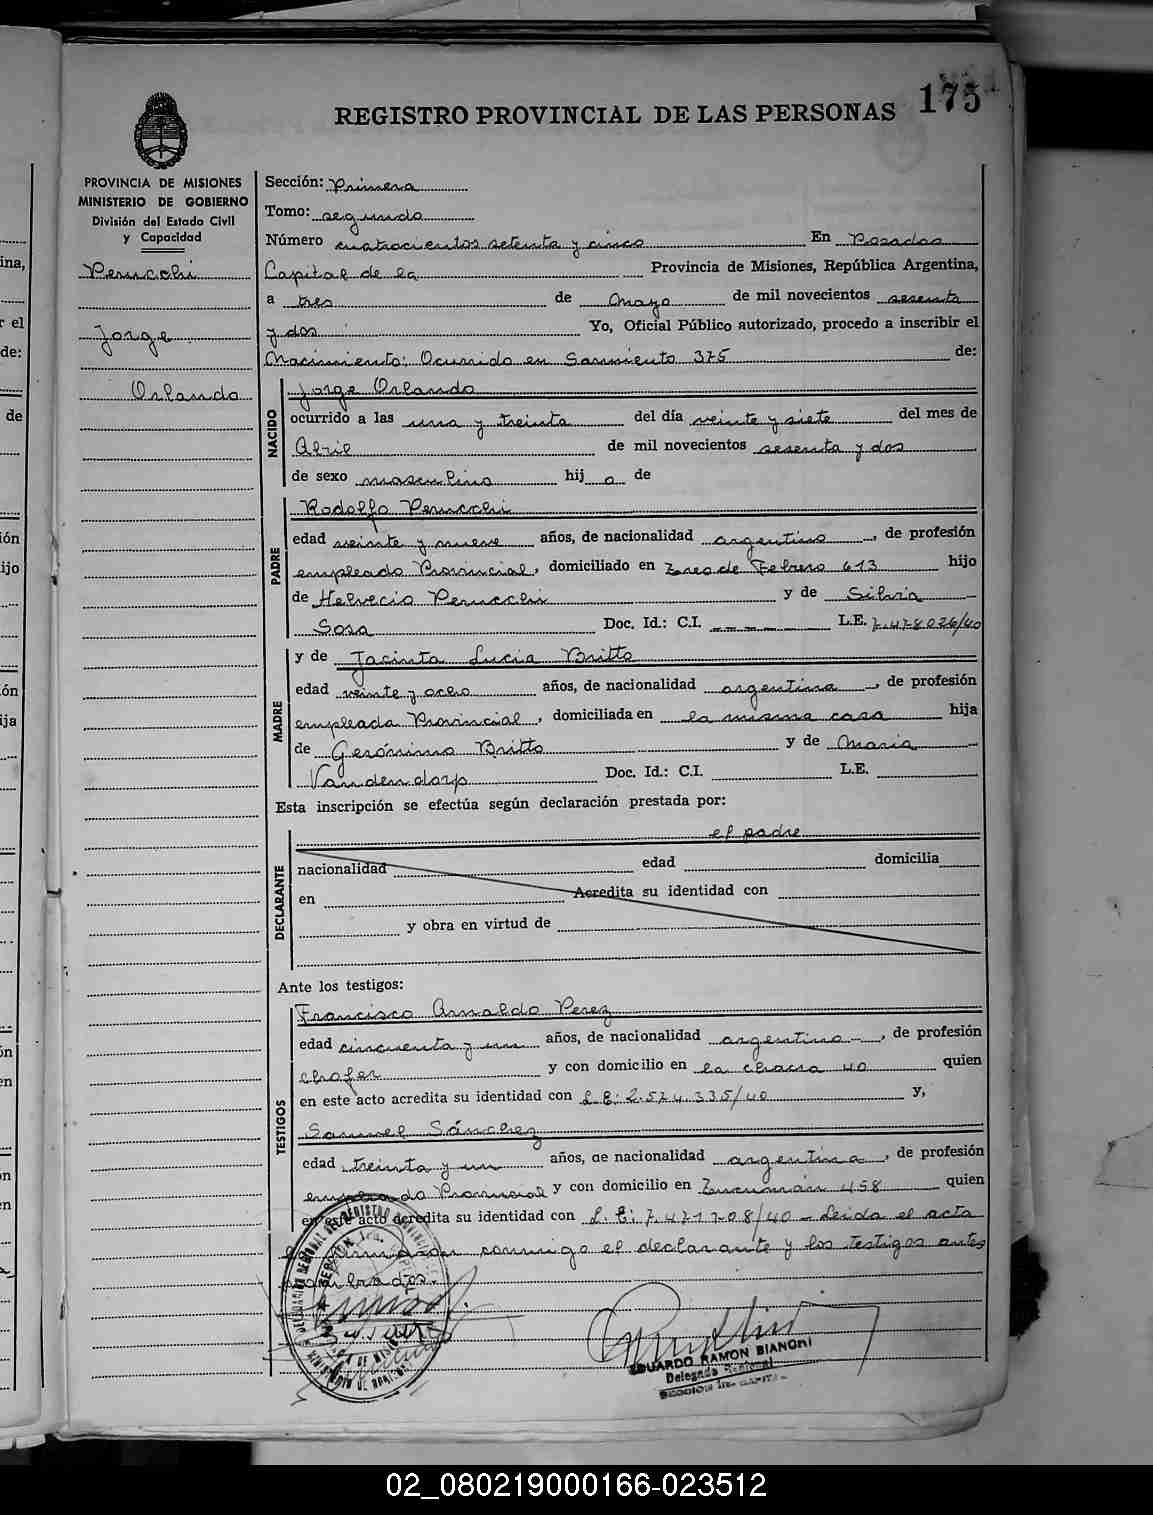 175
REGISTRO PROVINCIAL DE LAS PERSONAS
PROVINCIA DE MISIONES
MINISTERIO DE GOBIERNO
División del Estado Civil
y Capacidad
Perucchi
Jorge
Orlando
Sección: Primera
Tomo: segundo
Número cuatrocientos setenta y cinco En Posadas
Capital de la Provincia de Misiones, República Argentina,
a tres de Mayo de mil novecientos sesenta
y dos Yo, Oficial Público autorizado, procedo a inscribir el
Nacimiento: Ocurrido en Sarmiento 375 de:
NACIDO
Jorge Orlando
ocurrido a las una y treinta del día veinte y siete del mes de
Abril de mil novecientos sesenta y dos
de sexo masculino hij o de
PADRE
Rodolfo Perucchi
edad veinte y nueve años, de nacionalidad argentino, de profesión
empleado Provincial, domiciliado en 3 de Febrero 613 hijo
de Helvecio Perucchi y de Silvia
Sosa Doc. Id.: C.I. L.E. 7.478.026/40
MADRE
y de Jacinta Lucia Britto
edad veinte y ocho años, de nacionalidad argentina, de profesión
empleada Provincial, domiciliada en la misma casa hija
de Gerónimo Britto y de Maria
Vandendorp Doc. Id.: C.I. L.E.
Esta inscripción se efectúa según declaración prestada por:
el padre
DECLARANTE
nacionalidad edad domicilia
en Acredita su identidad con
y obra en virtud de
Ante los testigos:
TESTIGOS
Francisco Arnaldo Perez
edad cincuenta y un años, de nacionalidad argentino, de profesión
chofer y con domicilio en la chacra 40 quien
en este acto acredita su identidad con L.E: 2.574.335/40 y,
Samuel Sánchez
edad treinta y un años, de nacionalidad argentina, de profesión
empleado Provincial y con domicilio en Tucumán 458 quien
en este acto acredita su identidad con L.E: 7.471.708/40 - Leida el acta
conmigo el declarante y los testigos antes
nombrados.
EDUARDO RAMON BIANCHI
Delegado Regional
SECCION 1ra. CAPITAL
02_080219000166-023512